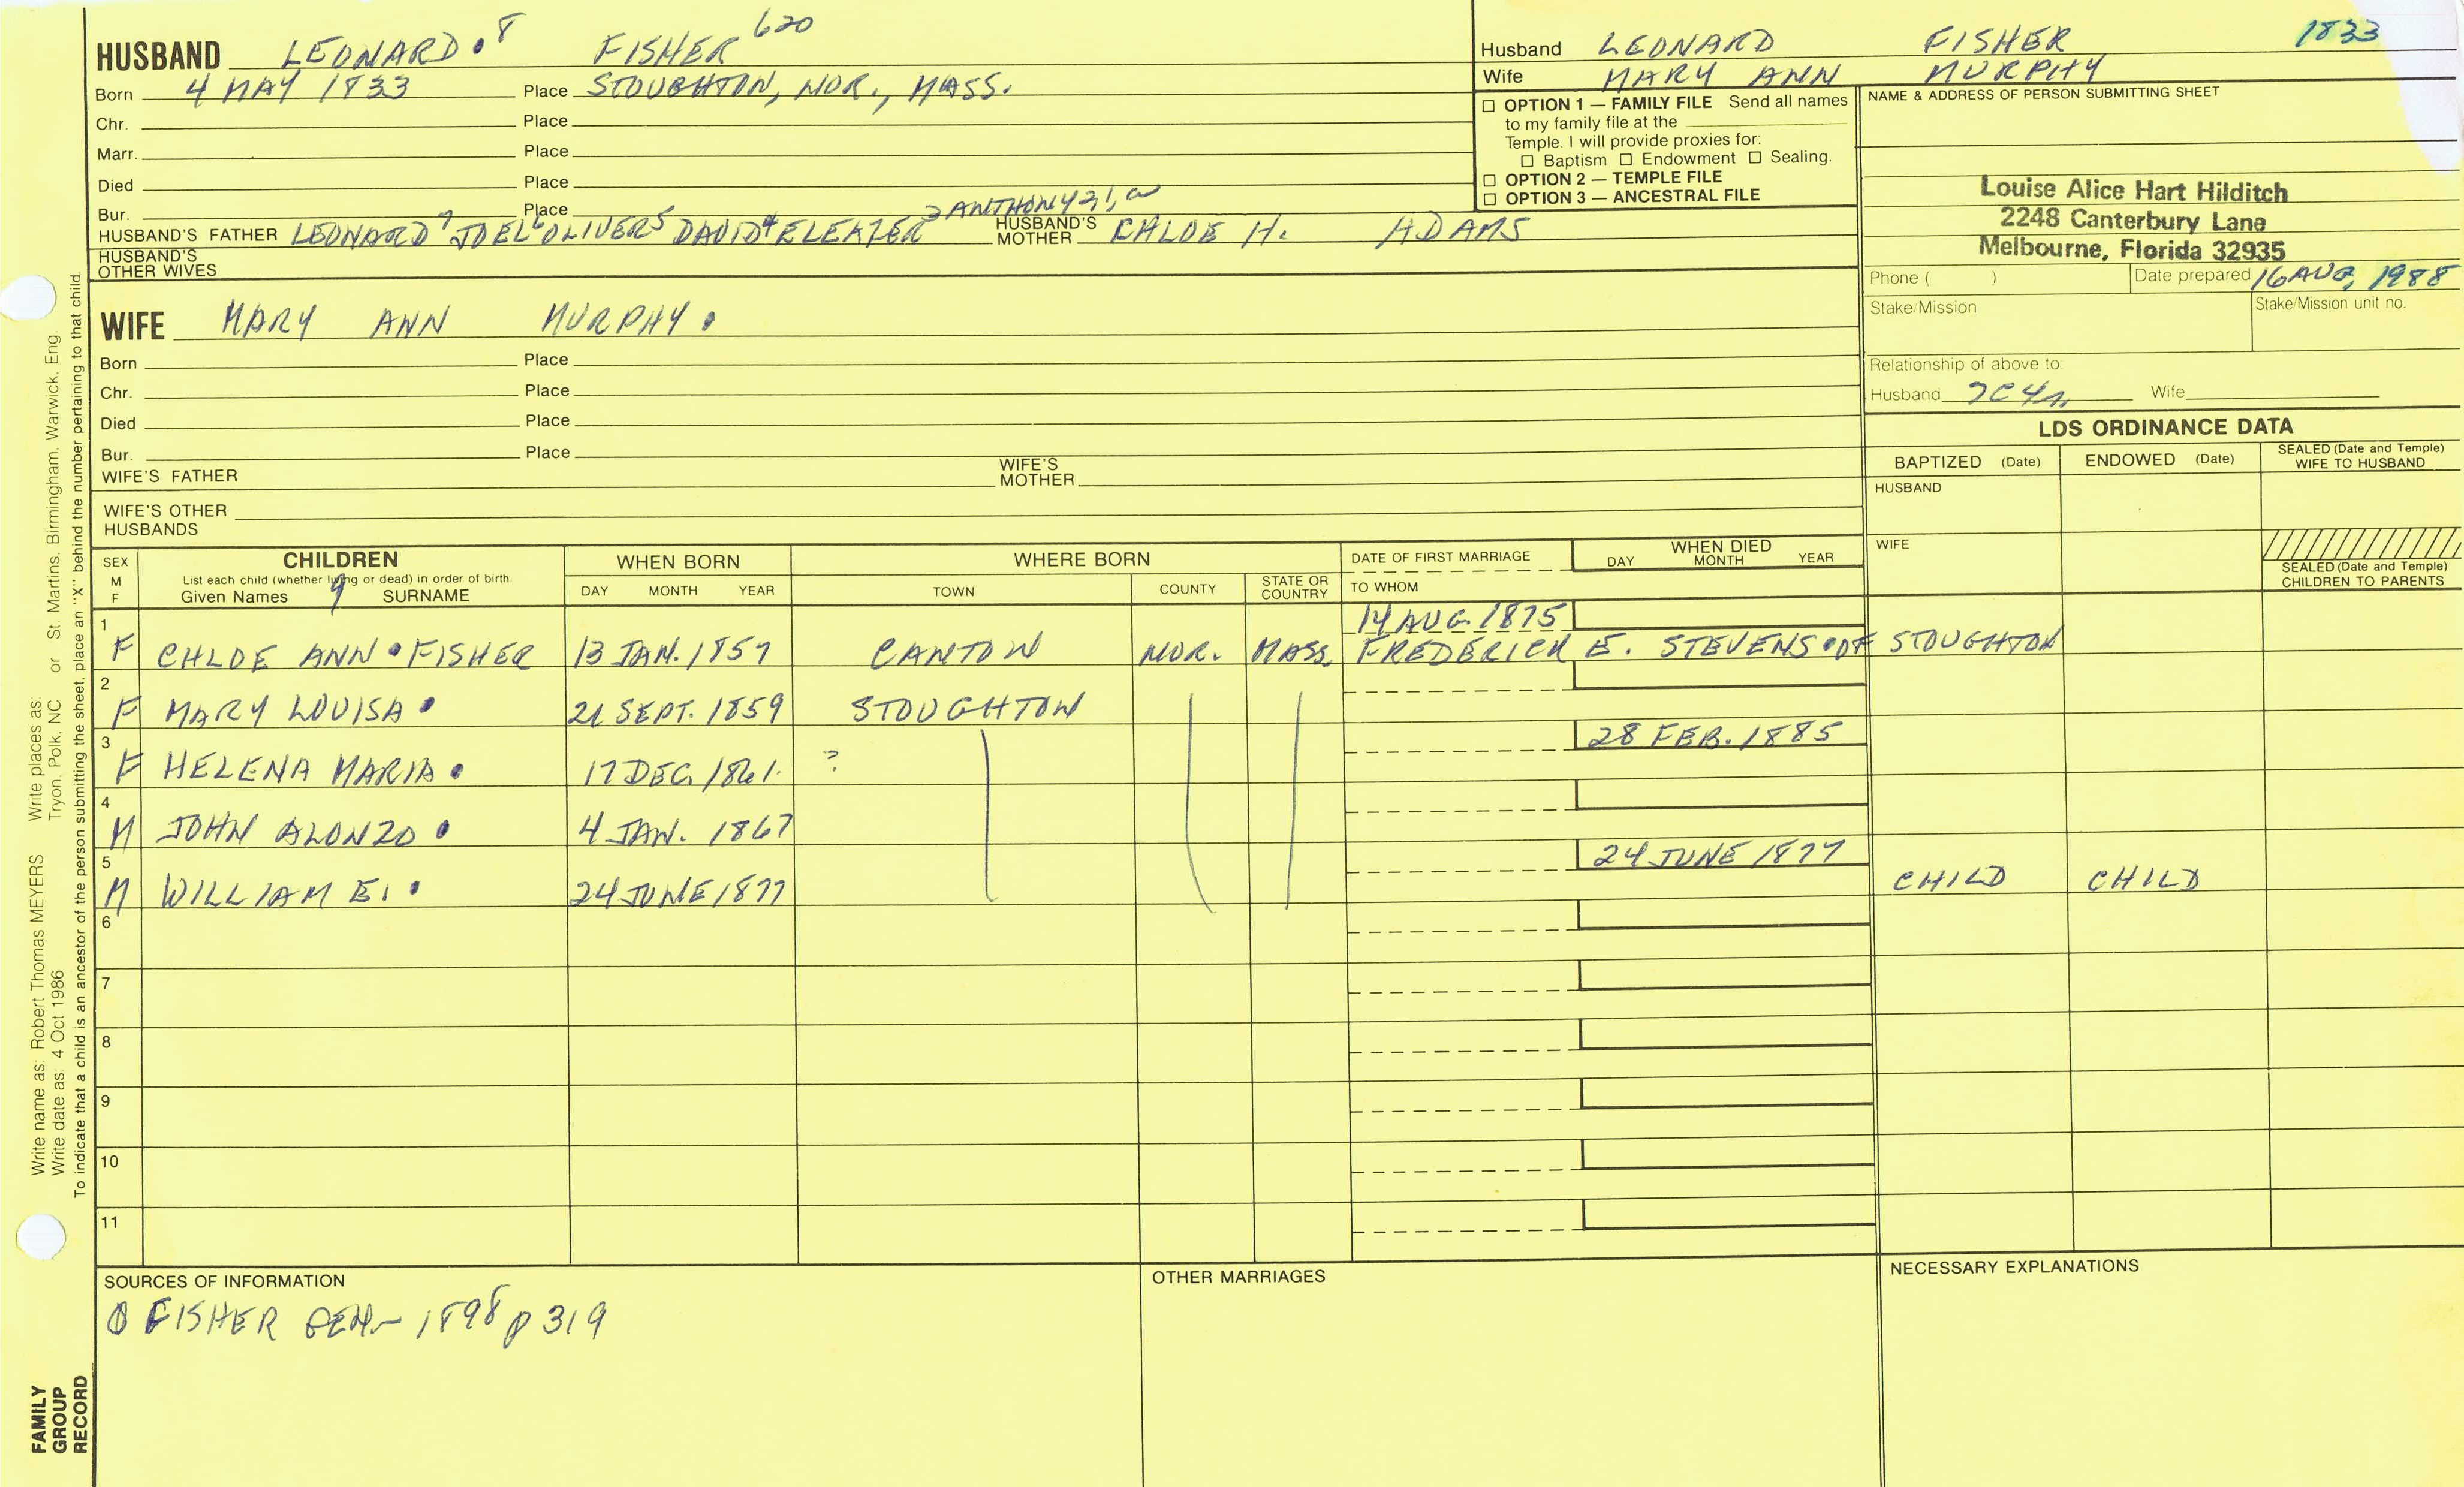 HUSBAND LEONARD. 8 FISHER 620
Born 4 MAY 1833 Place STOUGHTON, NOR., MASS.
Chr. Place
Marr. Place
Died Place
Bur. Place
HUSBAND'S FATHER LEONARD 7 JOEL 6 OLIVER 5 DAVID 4 ELEAZER 3 ANTHONY 2, 1, HUSBAND'S MOTHER CHLOE H. ADAMS
HUSBAND'S OTHER WIVES
WIFE MARY ANN MURPHY.
Born Place
Chr. Place
Died Place
Bur. Place
WIFE'S FATHER WIFE'S MOTHER
WIFE'S OTHER HUSBANDS
Husband LEONARD FISHER 1833
Wife MARY ANN MURPHY
☐ OPTION 1 — FAMILY FILE Send all names
to my family file at the
Temple. I will provide proxies for:
☐ Baptism ☐ Endowment ☐ Sealing.
☐ OPTION 2 — TEMPLE FILE
☐ OPTION 3 — ANCESTRAL FILE
NAME & ADDRESS OF PERSON SUBMITTING SHEET
Louise Alice Hart Hilditch
2248 Canterbury Lane
Melbourne, Florida 32935
Phone ( ) Date prepared 16 AUG, 1988
Stake/Mission Stake/Mission unit no.
Relationship of above to:
Husband 7C4r. Wife
LDS ORDINANCE DATA
BAPTIZED (Date) ENDOWED (Date) SEALED (Date and Temple) WIFE TO HUSBAND
HUSBAND
WIFE
SEALED (Date and Temple) CHILDREN TO PARENTS
SEX M F
CHILDREN
List each child (whether living or dead) in order of birth
Given Names SURNAME
WHEN BORN
DAY MONTH YEAR
WHERE BORN
TOWN COUNTY STATE OR COUNTRY
DATE OF FIRST MARRIAGE
TO WHOM
WHEN DIED
DAY MONTH YEAR
14 AUG. 1875
1 F CHLOE ANN . FISHER 13 JAN. 1857 CANTON NOR. MASS. FREDERICK E. STEVENS . OF STOUGHTON
2 F MARY LOUISA . 21 SEPT. 1859 STOUGHTON
28 FEB. 1885
3 F HELENA MARIA . 17 DEC. 1861. ?
4 M JOHN ALONZO . 4 JAN. 1867
24 JUNE 1877
5 M WILLIAM E. . 24 JUNE 1877 CHILD CHILD
6
7
8
9
10
11
SOURCES OF INFORMATION
FISHER GEN- 1898 p 319
OTHER MARRIAGES
NECESSARY EXPLANATIONS
Write name as: Robert Thomas MEYERS Write places as:
Write date as: 4 Oct 1986 Tryon, Polk, NC or St. Martins, Birmingham, Warwick, Eng.
To indicate that a child is an ancestor of the person submitting the sheet, place an "X" behind the number pertaining to that child.
FAMILY
GROUP
RECORD